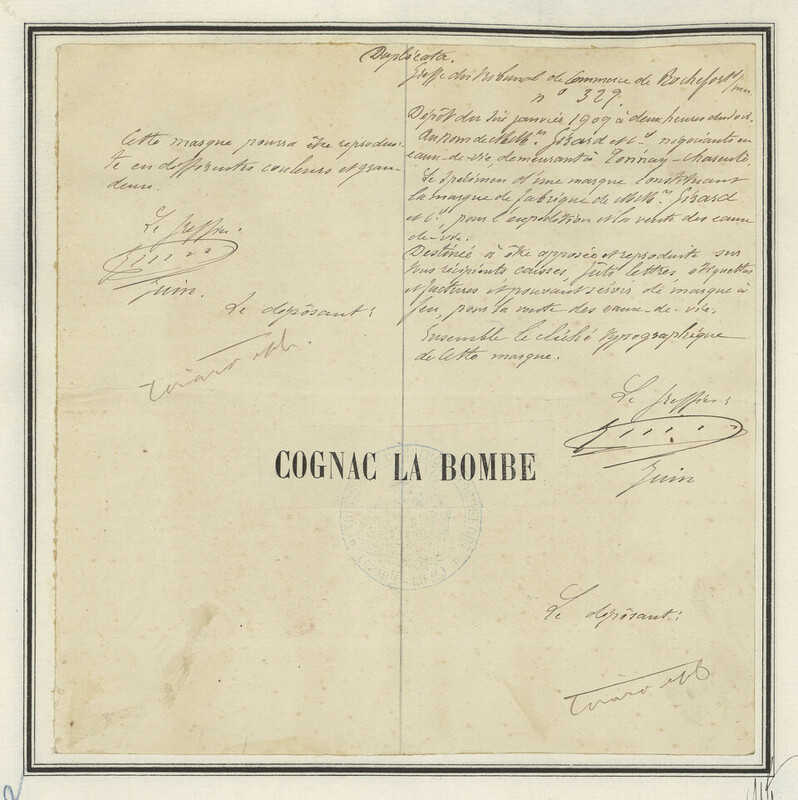 Duplicata.
Greffe du tribunal de Commerce de Rochefort s/ mer
n° 329.
Dépôt du janvier 1909 à deux heures du soir.
Au nom de MM.rs Girard et Cie négociants en
eaux-de-vie, demeurant à Tonnay-Charente.
Le spécimen d'une marque constituant
la marque de fabrique de MM.rs Girard
et Cie pour l'expédition et la vente des eaux-
de-vie.
Destinée à être apposée et reproduite sur
tous récipients caisses, fûts lettres, étiquettes
et factures et pouvant servir de marque à
feu, pour la vente des eaux-de-vie.
Ensemble le cliché typographique
de cette marque.
Le greffier:
Juin
Cette marque pourra être reprodui-
te en différentes couleurs et gran-
deurs.
Le greffier.
Juin.
Le dépôsant:
Girard et Cie
COGNAC LA BOMBE
Le dépôsant:
Girard et Cie